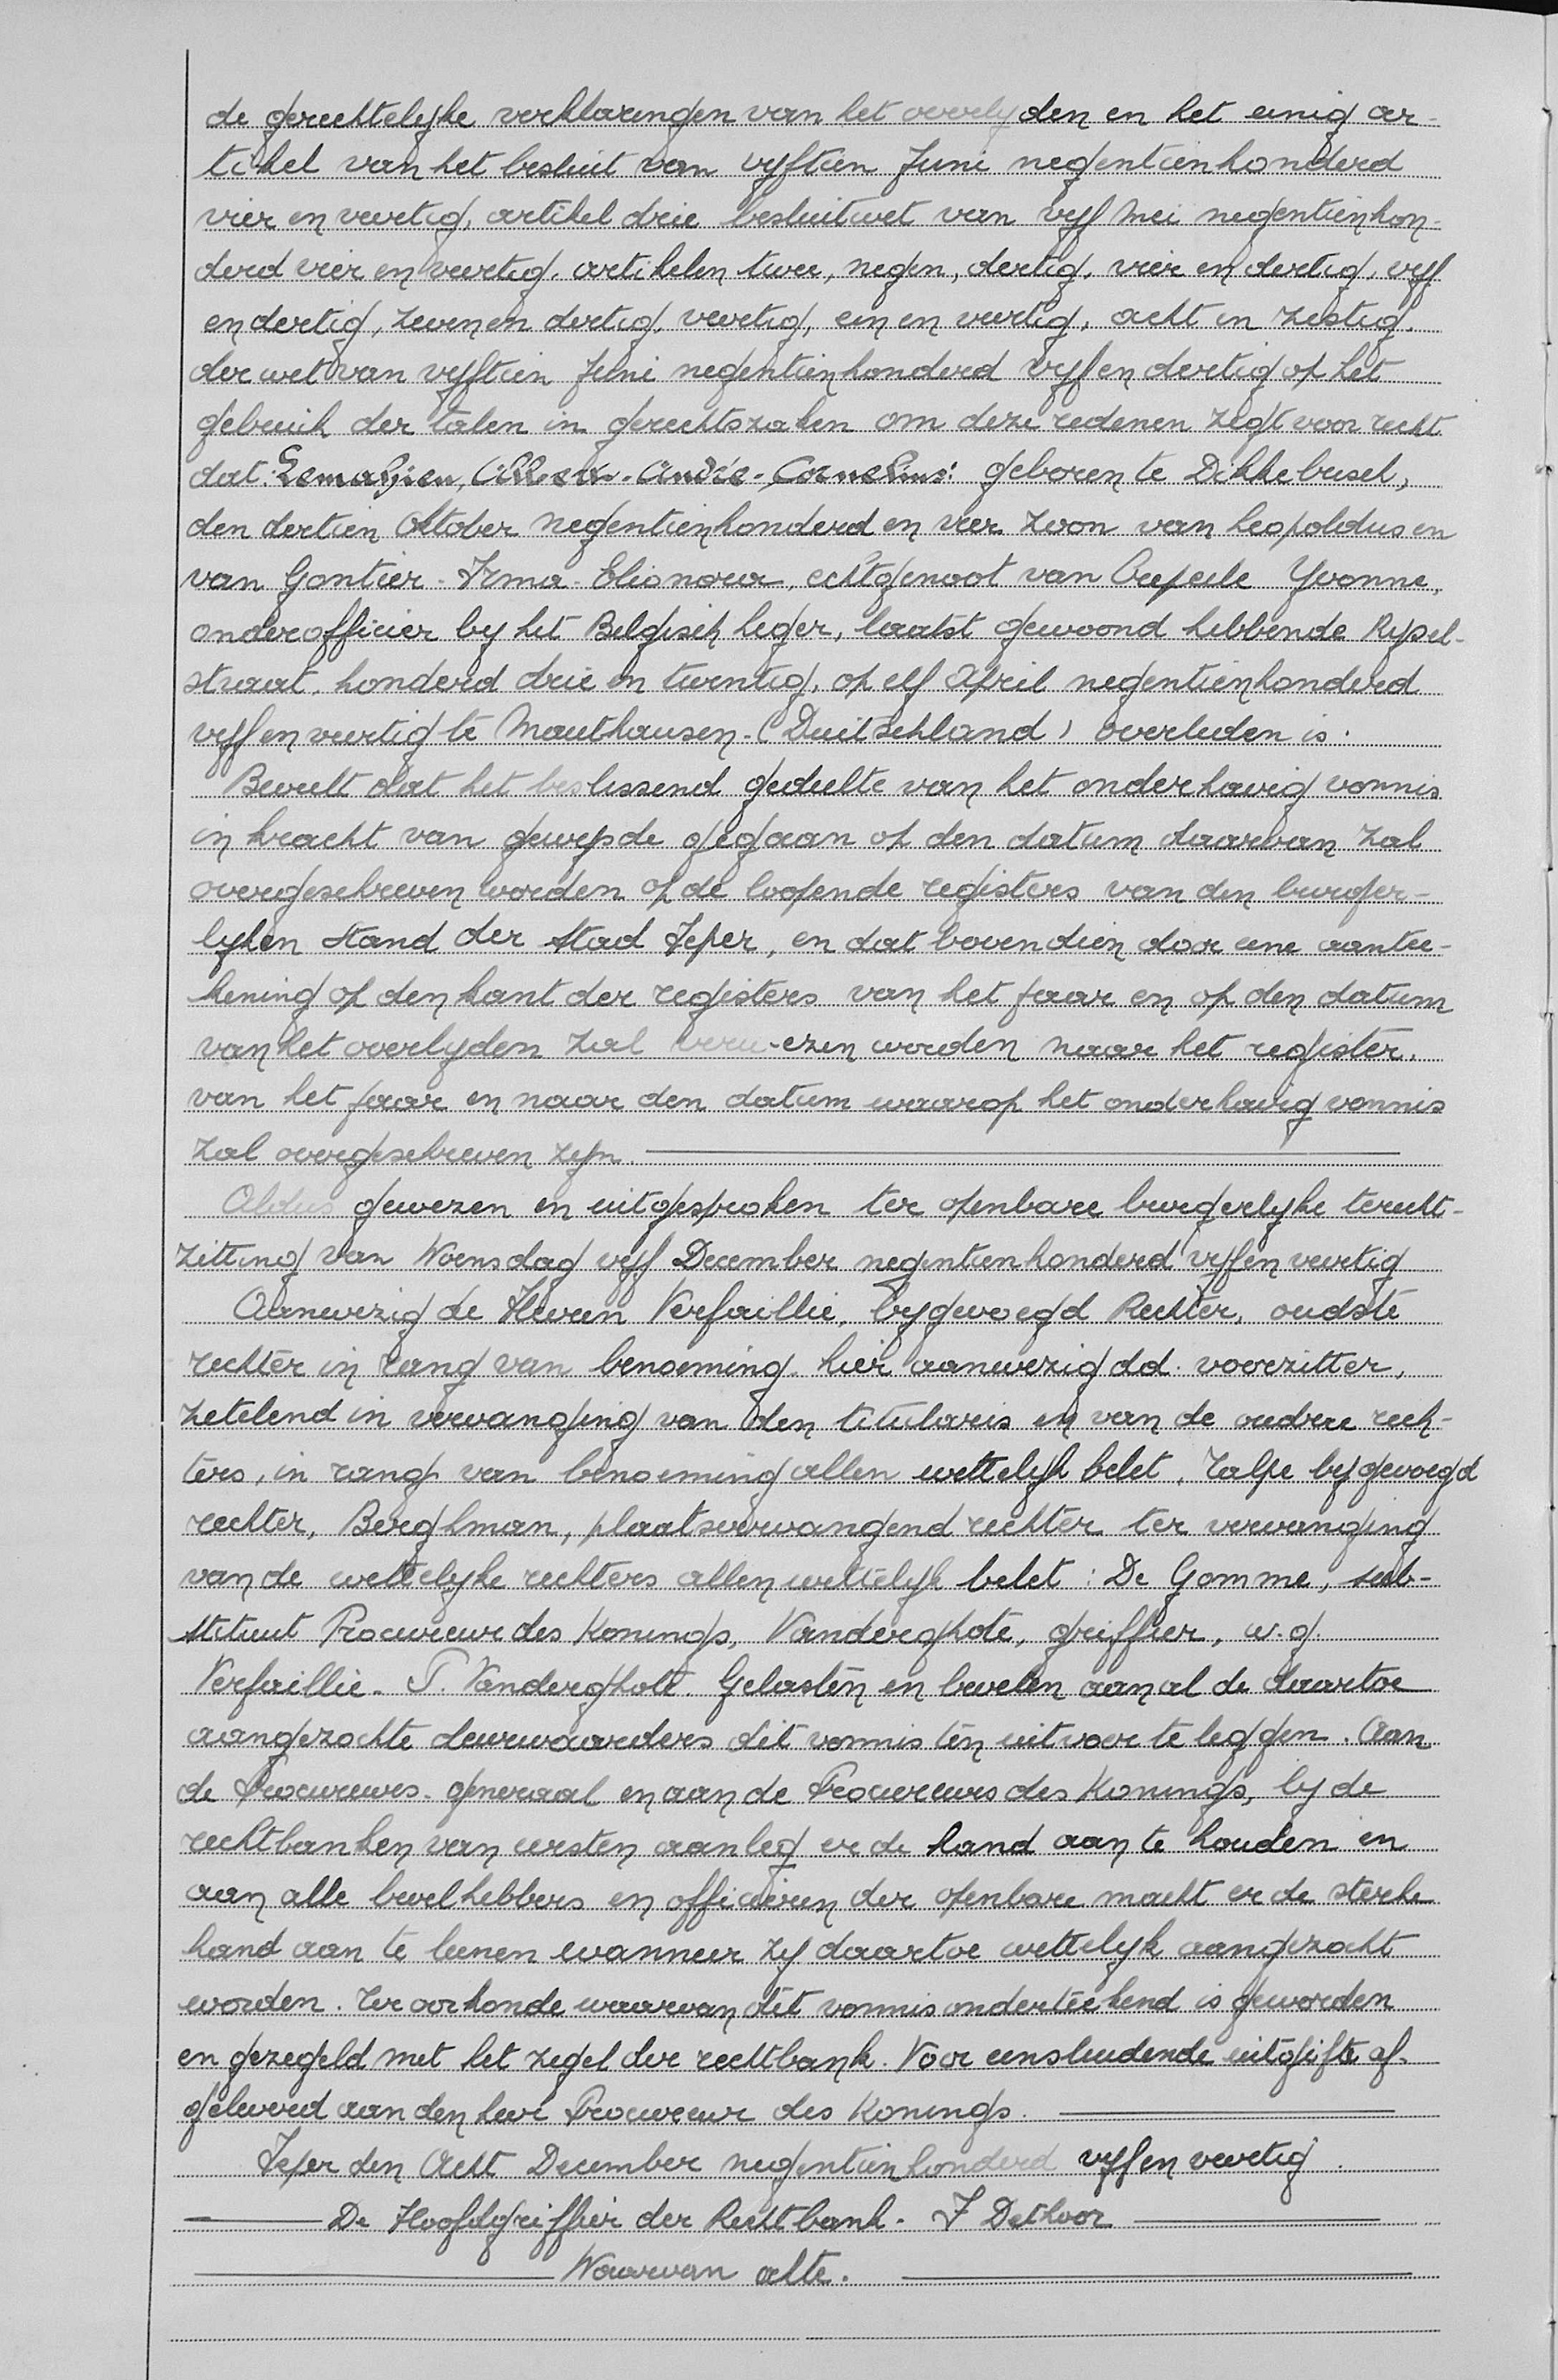 de gerechtelyke verklaringen van het overlyden en het eenig ar-
tikel van het besluit van vyftien Juni negentienhonderd
vier en veertig, artikel drie besluitwet van vyf Mei negentienhon-
derd vier en veertig, artikelen twee, negen, dertig, vier en dertig, vyf
en dertig, zeven en dertig, veertig, een en veertig, acht en zestig,
der wet van vyftien Juni negentienhonderd vyf en dertig op het
gebruik der talen in gerechtszaken om deze redenen zegt voor recht
dat: Lemahieu, Albert-André-Cornelius: geboren te Dikkebusch,
den dertien Oktober negentienhonderd en vier zoon van Leopoldus en
van Gontier-Irma-Elionora, echtgenoot van Cupeile Yvonne,
onderofficier by het Belgisch leger, laatst gewoond hebbende Rysel-
straat, honderd drie en twentig, op elf April negentienhonderd
vyf en veertig te Mauthausen-(Duitschland) overleden is.
Beveelt dat het beslissend gedeelte van het onderhavig vonnis
in kracht van gewysde gegaan op den datum daarvan zal
overgeschreven worden op de loopende registers van den burger-
lyken stand der stad Ieper, en dat bovendien door eene aantee-
kening op den kant der registers van het jaar en op den datum
van het overlyden zal verw-ezen worden naar het register.
van het jaar en naar den datum waarop het onderhavig vonnis
zal overgeschreven zyn.
Aldus gewezen en uitgesproken ter openbare burgerlyke terecht-
zitting van Woensdag vyf December negentienhonderd vyf en veertig
Aanwezig de Heeren Verfaillie, bygevoegd Rechter, oudste
rechter in rang van benoeming hier aanwezig dd. voorzitter,
zetelend in vervanging van den titularis en van de oudere rech-
ters, in rang van benoeming allen wettelyk belet, Talpe bygevoegd
rechter, Berghman, plaatsvervangend rechter ter vervanging
van de wettelyke rechters allen wettelyk belet: De Gomme, sub-
stituut Procureur des Konings, Vanderghote, griffier, w.g.
Verfaillie. T. Vanderghote. Gelasten en bevelen aan al de daartoe
aangezochte deurwaarders dit vonnis ten uitvoer te leggen. Aan
de Procureurs-generaal en aan de Procureurs des Konings, by de
rechtbanken van eersten aanleg er de hand aan te houden en
aan alle bevelhebbers en officieren der openbare macht er de sterke
hand aan te leenen wanneer zy daartoe wettelyk aangezocht
worden. Ter oorkonde waarvan dit vonnis onderteekend is geworden
en gezegeld met het zegel der rechtbank. Voor eensluidende uitgifte af-
geleverd aan den heer Procureur des Konings.
Ieper den Acht December negentienhonderd vyf en veertig.
De Hoofdgriffier der Rechtbank. J Dethoor
Waarvan akte.